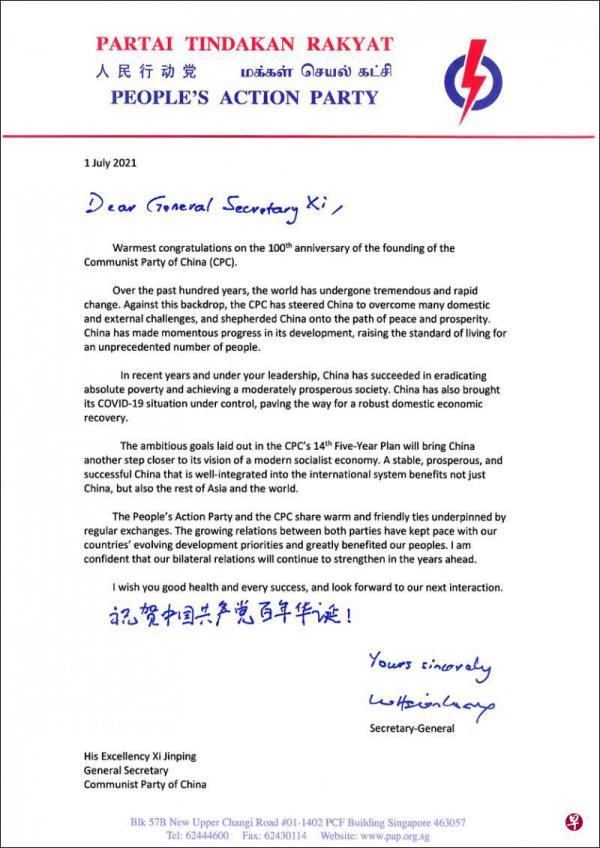 PARTAI TINDAKAN RAKYAT
人民行动党 மக்கள் செயல் கட்சி
PEOPLE'S ACTION PARTY
1 July 2021
Dear General Secretary Xi,
Warmest congratulations on the 100th anniversary of the founding of the
Communist Party of China (CPC).
Over the past hundred years, the world has undergone tremendous and rapid
change. Against this backdrop, the CPC has steered China to overcome many domestic
and external challenges, and shepherded China onto the path of peace and prosperity.
China has made momentous progress in its development, raising the standard of living for
an unprecedented number of people.
In recent years and under your leadership, China has succeeded in eradicating
absolute poverty and achieving a moderately prosperous society. China has also brought
its COVID-19 situation under control, paving the way for a robust domestic economic
recovery.
The ambitious goals laid out in the CPC's 14th Five-Year Plan will bring China
another step closer to its vision of a modern socialist economy. A stable, prosperous, and
successful China that is well-integrated into the international system benefits not just
China, but also the rest of Asia and the world.
The People's Action Party and the CPC share warm and friendly ties underpinned by
regular exchanges. The growing relations between both parties have kept pace with our
countries' evolving development priorities and greatly benefited our peoples. I am
confident that our bilateral relations will continue to strengthen in the years ahead.
I wish you good health and every success, and look forward to our next interaction.
祝贺中国共产党百年华诞!
Yours sincerely
Secretary-General
His Excellency Xi Jinping
General Secretary
Communist Party of China
Blk 57B New Upper Changi Road #01-1402 PCF Building Singapore 463057
Tel: 62444600 Fax: 62430114 Website: www.pap.org.sg
早